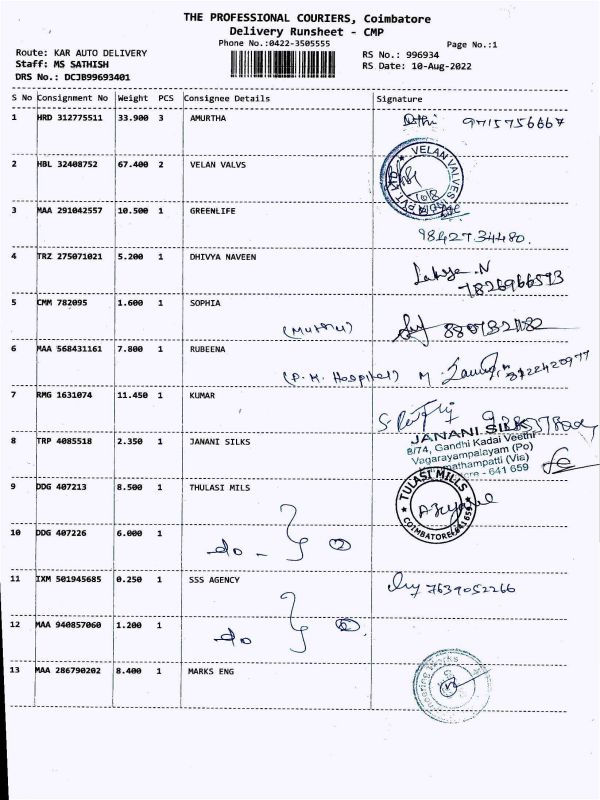 THE PROFESSIONAL COURIERS, Coimbatore
Delivery Runsheet - CMP
Phone No.:0422-3505555
Page No.:1
Route: KAR AUTO DELIVERY
RS No.: 996934
Staff: MS SATHISH
RS Date: 10-Aug-2022
DRS No.: DCJB99693401
S No Consignment No Weight PCS Consignee Details Signature
1 HRD 312775511 33.900 3 AMURTHA 9715756667
2 HBL 32408752 67.400 2 VELAN VALVS
VELAN VALVES PVT LTD
3 MAA 291042557 10.500 1 GREENLIFE
9842734480.
4 TRZ 275071021 5.200 1 DHIVYA NAVEEN
7826966593
5 CMM 782095 1.600 1 SOPHIA
(Muthu)
6 MAA 568431161 7.800 1 RUBEENA
(P.M. Hospital) M.
7 RMG 1631074 11.450 1 KUMAR
8 TRP 4085518 2.350 1 JANANI SILKS
JANANI SILKS
8/74, Gandhi Kadai Veethi
Vagarayampalayam (Po)
mathampatti (Via)
ore - 641 659
9 DDG 407213 8.500 1 THULASI MILS
TULASI MILLS
COIMBATORE-641 659
10 DDG 407226 6.000 1
do - 2
11 IXM 501945685 0.250 1 SSS AGENCY 7639052266
12 MAA 940857060 1.200 1
do 2.
13 MAA 286790202 8.400 1 MARKS ENG